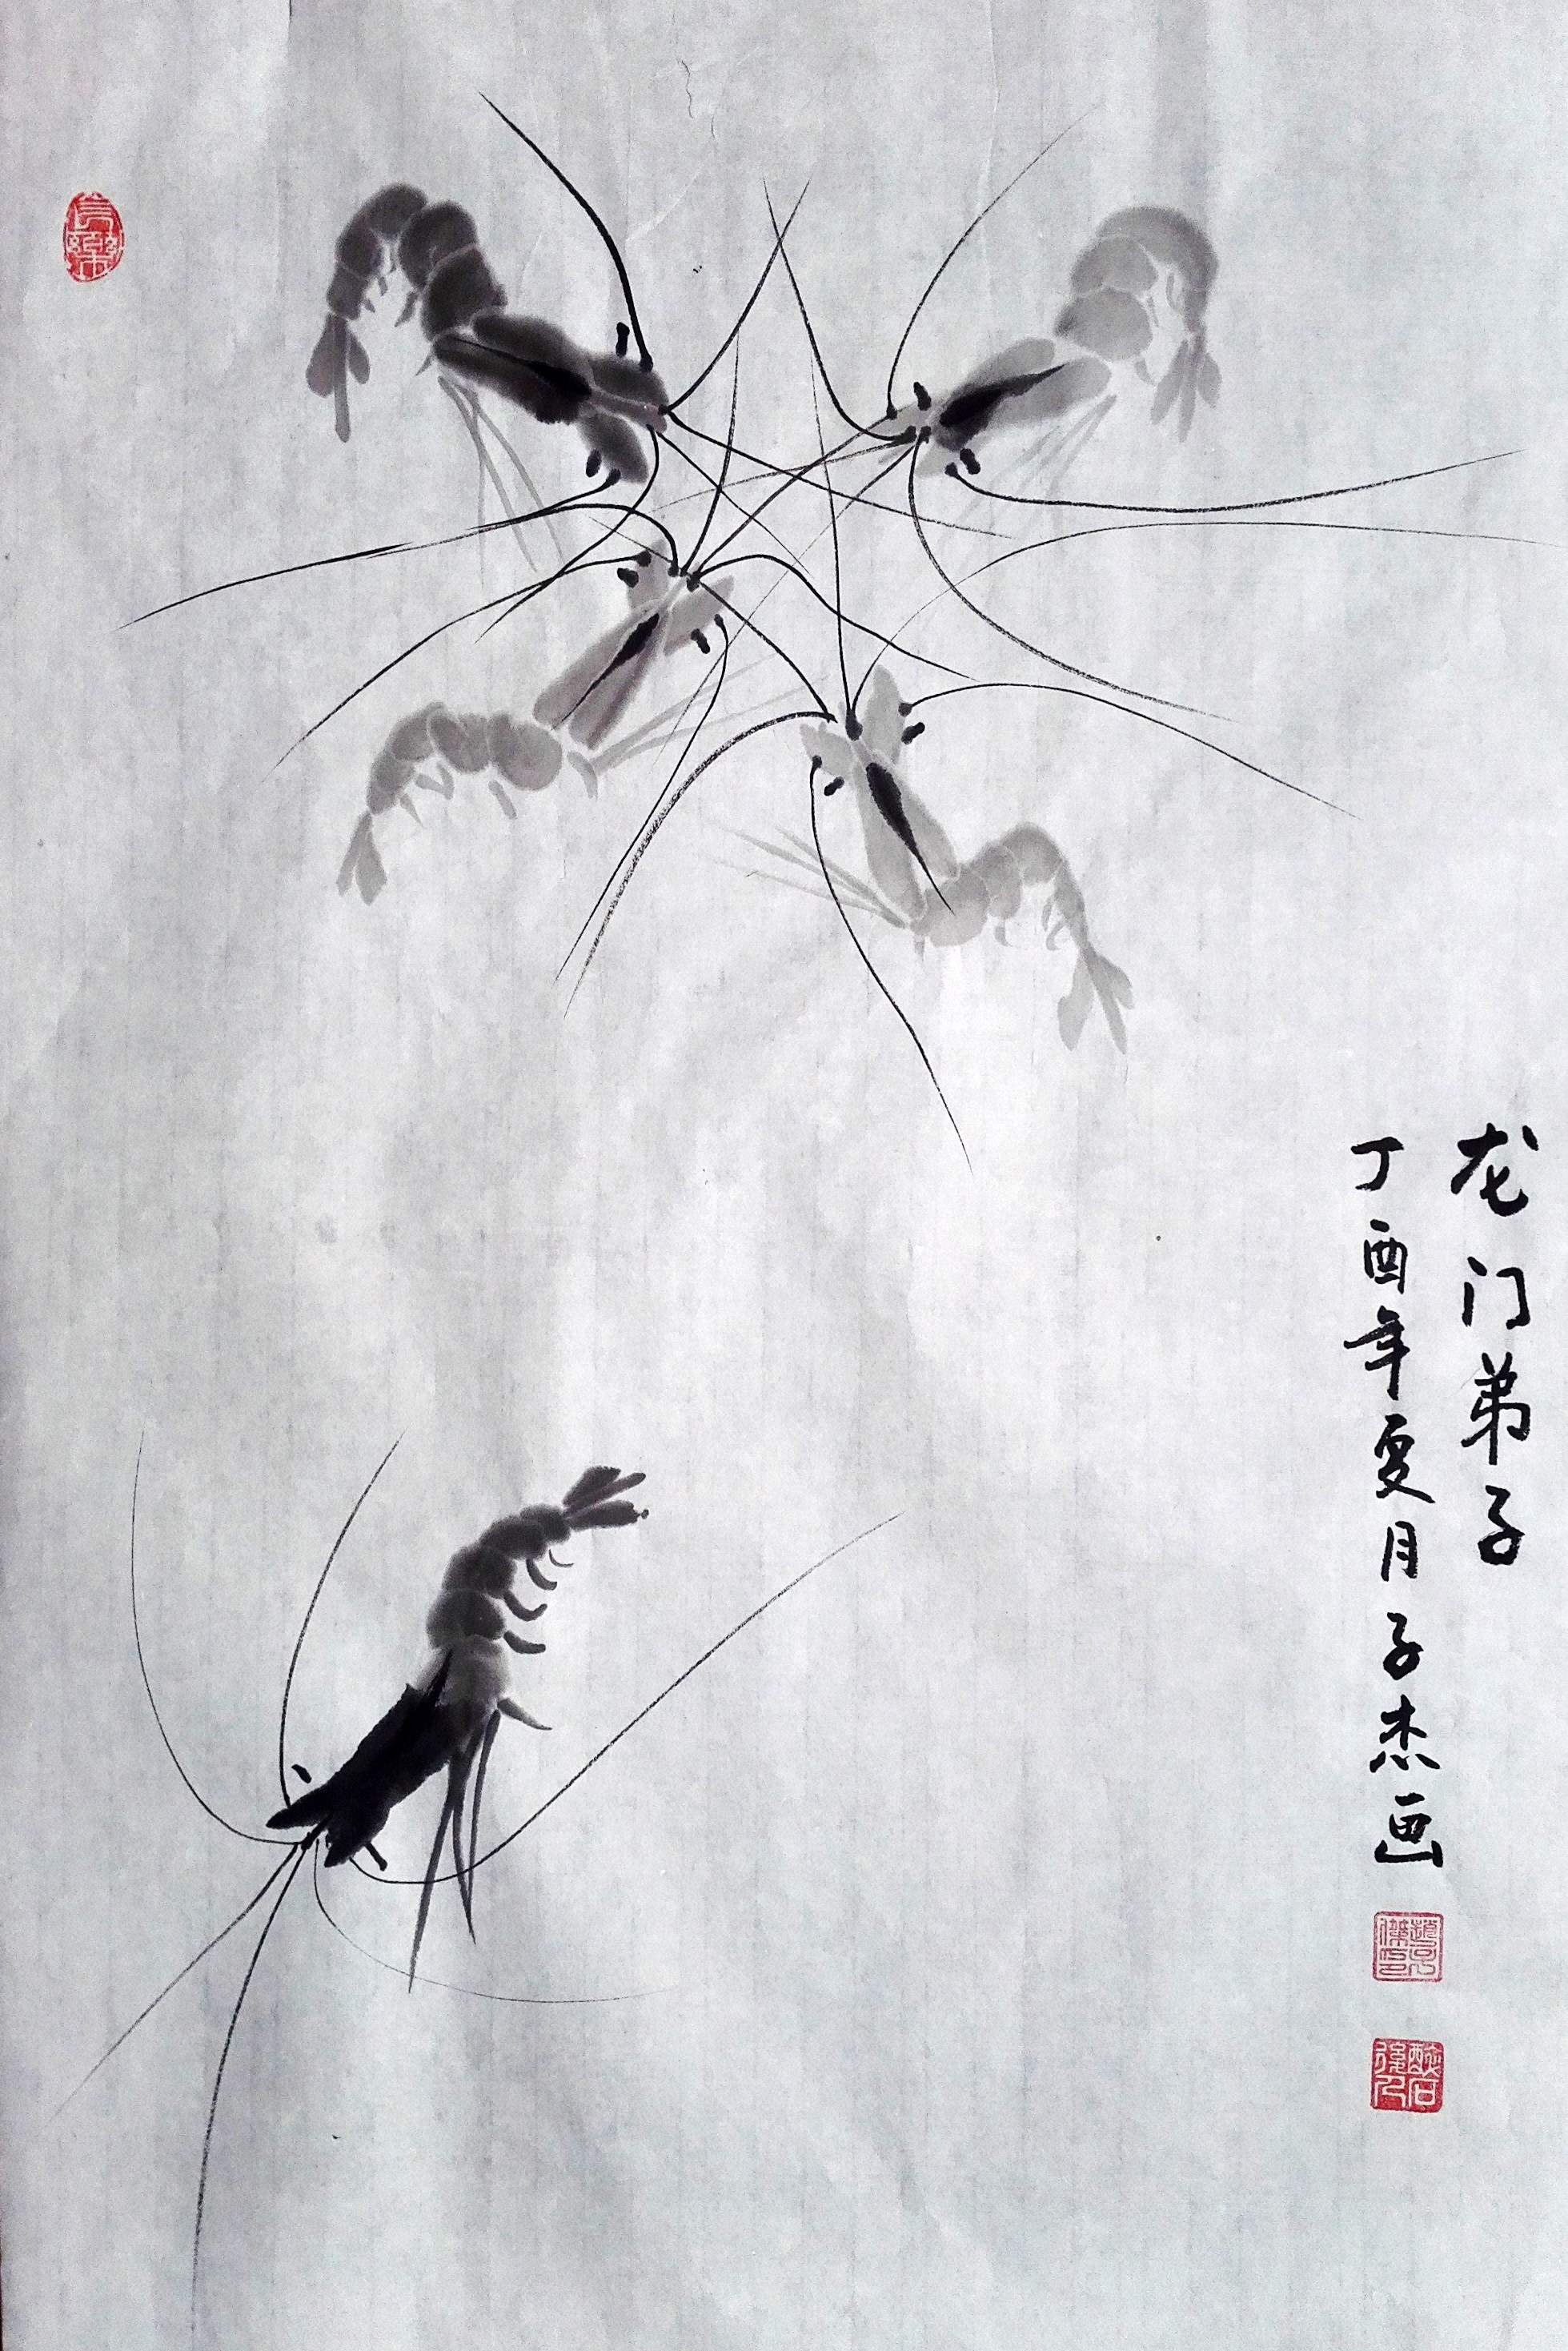 龙门弟子
丁酉年夏月子杰画